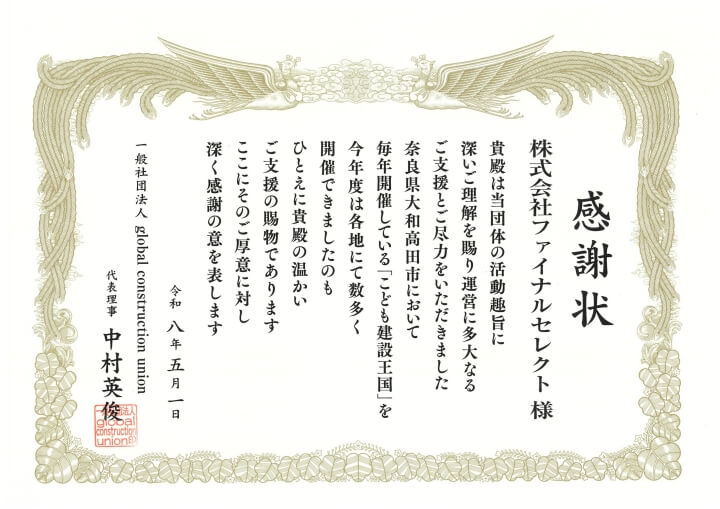 感謝状
株式会社ファイナルセレクト 様
貴殿は当団体の活動趣旨に
深いご理解を賜り運営に多大なる
ご支援とご尽力をいただきました
奈良県大和高田市において
毎年開催している「こども建設王国」を
今年度は各地にて数多く
開催できましたのも
ひとえに貴殿の温かい
ご支援の賜物であります
ここにそのご厚意に対し
深く感謝の意を表します
令和 八年 五月 一日
一般社団法人 global construction union
代表理事 中村英俊
global
construction
union印